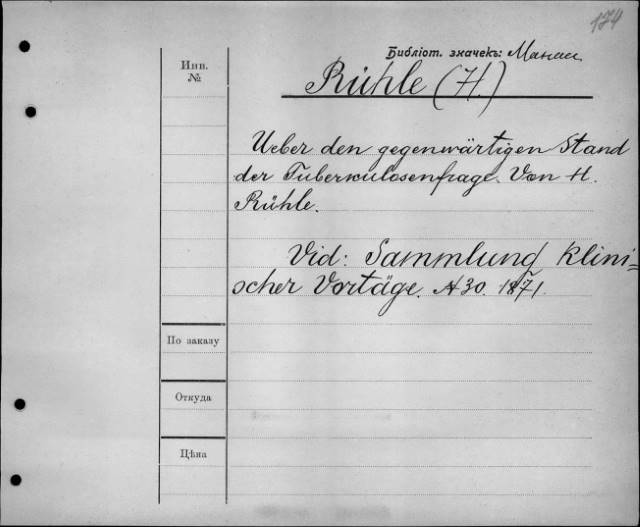 174
Библіот. значекъ:
Инв.
№
Rühle (H.)
Ueber den gegenwärtigen Stand
der Tuberkulosenfrage. Von H.
Rühle.
Vid: Sammlung klini=
scher Vortäge. № 30. 1871.
По заказу
Откуда
Цѣна